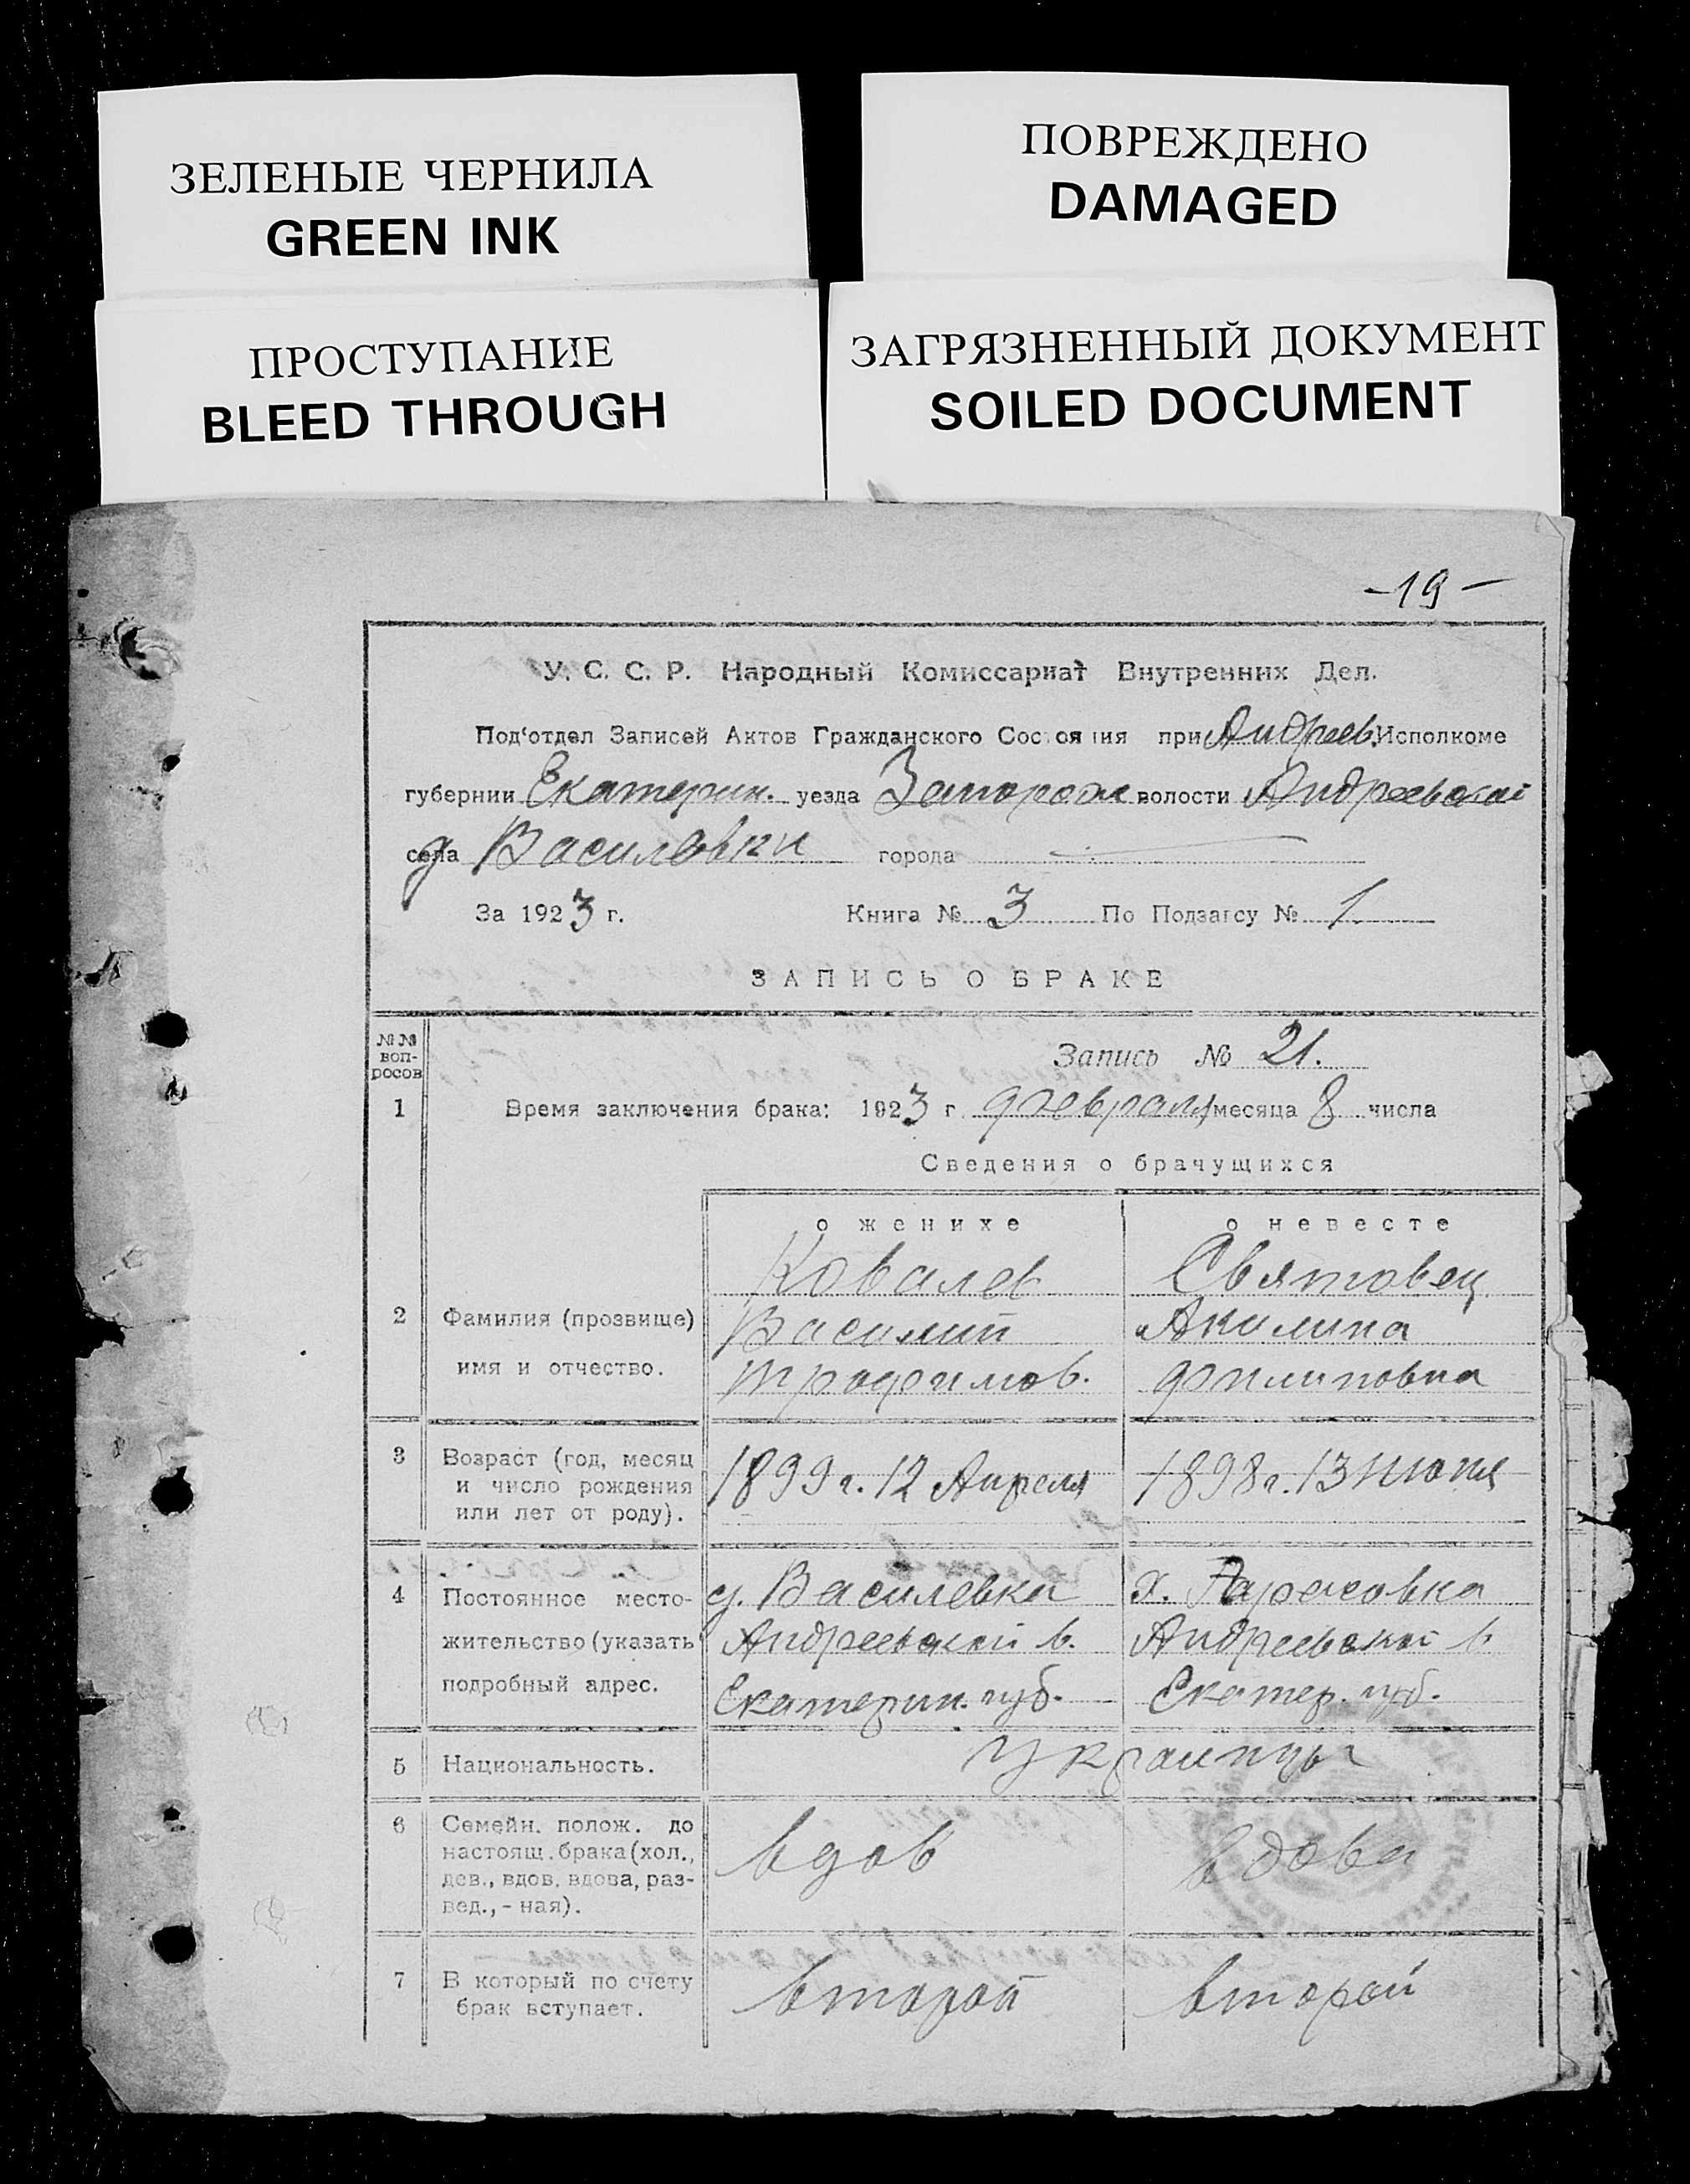 ЗЕЛЕНЫЕ ЧЕРНИЛА
GREEN INK
ПОВРЕЖДЕНО
DAMAGED
ПРОСТУПАНИЕ
BLEED THROUGH
ЗАГРЯЗНЕННЫЙ ДОКУМЕНТ
SOILED DOCUMENT
-19-
У. С. С. Р. Народный Комиссариат Внутренних Дел.
Под'отдел Записей Актов Гражданского Состояния при Андреев. Исполкоме
губернии Екатерин. уезда Запорож волости Андреевской
села д Василевки города —
За 1923 г. Книга № 3 По Подзагсу № 1.
ЗАПИСЬ О БРАКЕ
№№ воп-росов
Запись № 21.
1 Время заключения брака: 1923 г. февраля месяца 8 числа
Сведения о брачущихся
о женихе о невесте
Ковалев Святовец
2 Фамилия (прозвище) Василий Акилина
имя и отчество. Трофимов. Филиповна
3 Возраст (год, месяц
и число рождения 1899 г. 12 Апреля 1898 г. 13 июня
или лет от роду).
4 Постоянное место- д. Василевка х.
жительство (указать Андреевской в. Андреевской в
подробный адрес. Екатерин. губ. Екатер. губ.
5 Национальность. украинцы
6 Семейн. полож. до
настоящ. брака (хол., вдов вдова
дев., вдов, вдова, раз-
вед., - ная).
7 В который по счету второй второй
брак вступает.